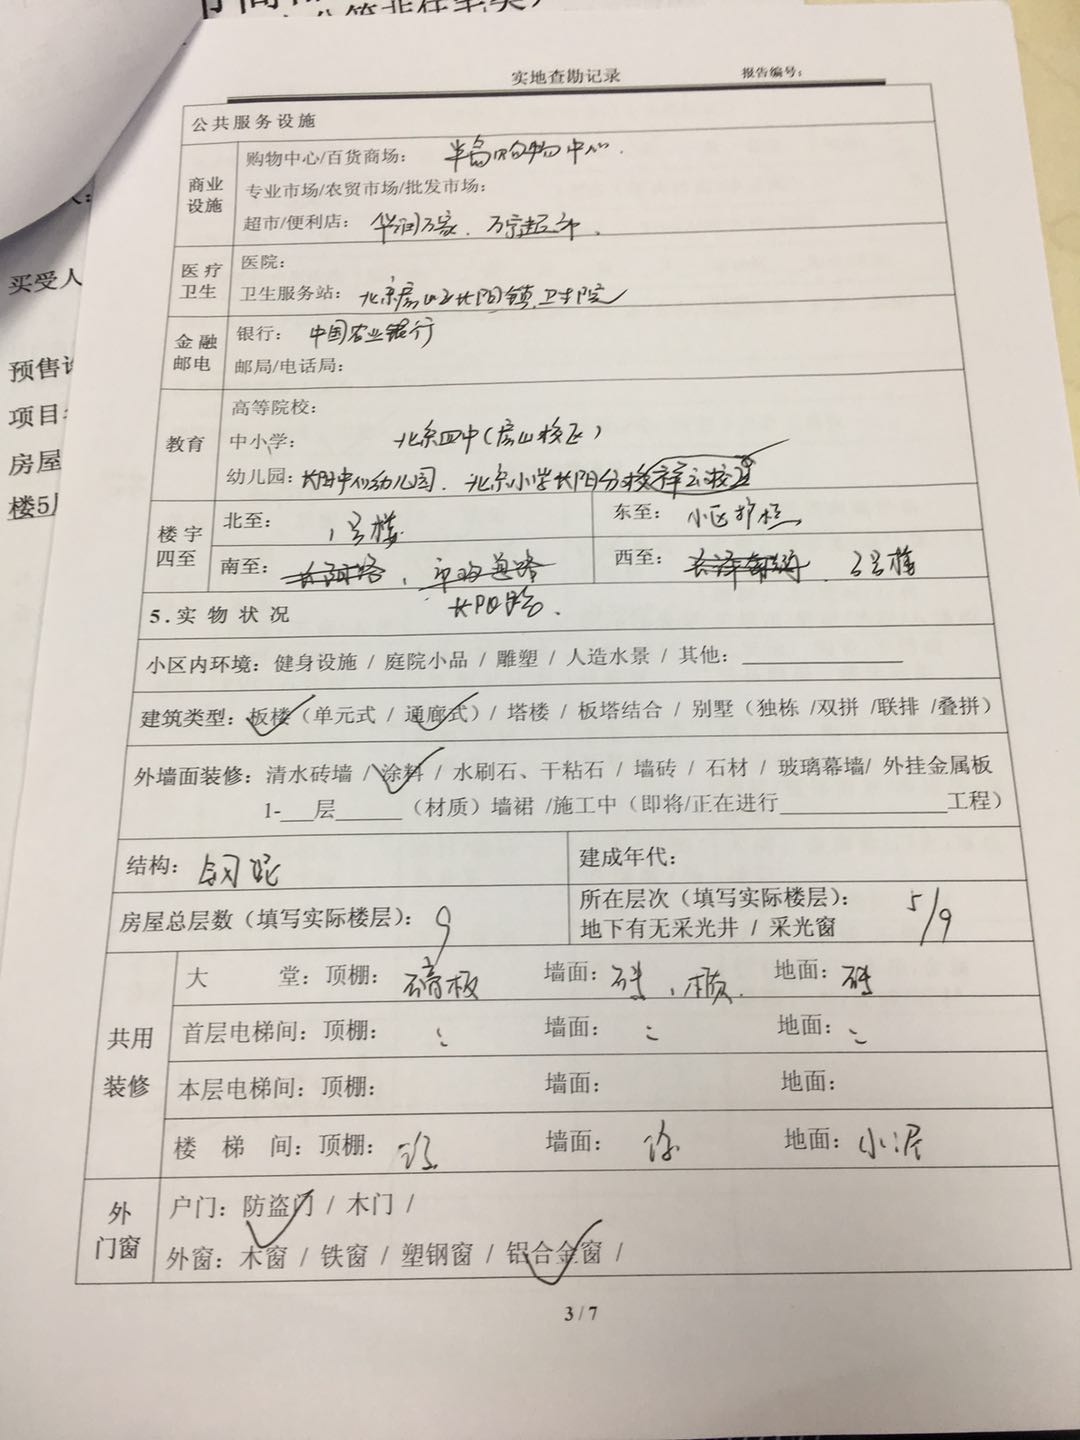 实地查勘记录 报告编号：
公共服务设施
商业设施
购物中心/百货商场： 半岛购物中心.
专业市场/农贸市场/批发市场：
超市/便利店： 华润万家、万宁超市、
医疗卫生
医院：
卫生服务站： 北京房山区长阳镇卫生院
金融邮电
银行： 中国农业银行
邮局/电话局：
教育
高等院校：
中小学： 北京四中（房山校区）
幼儿园：长阳中心幼儿园. 北京小学长阳分校
楼宇四至
北至： 1号楼 东至： 小区护栏
南至： 长阳路. 西至： 3号楼
5.实物状况
小区内环境：健身设施 / 庭院小品 / 雕塑 / 人造水景 / 其他：
建筑类型：板楼（单元式 / 通廊式）/ 塔楼 / 板塔结合 / 别墅（独栋 /双拼 /联排 /叠拼）
外墙面装修：清水砖墙 / 涂料 / 水刷石、干粘石 / 墙砖 / 石材 / 玻璃幕墙/ 外挂金属板
1-___层______（材质）墙裙 /施工中（即将/正在进行_______________工程）
结构： 钢混 建成年代：
房屋总层数（填写实际楼层）： 9 所在层次（填写实际楼层）： 5/9
地下有无采光井 / 采光窗
共用装修
大 堂：顶棚： 石膏板 墙面： 砖、 地面： 砖
首层电梯间：顶棚： 墙面： 地面：
本层电梯间：顶棚： 墙面： 地面：
楼 梯 间：顶棚： 涂 墙面： 涂 地面： 水泥
外门窗
户门：防盗门 / 木门 /
外窗：木窗 / 铁窗 / 塑钢窗 / 铝合金窗 /
3 / 7
买受人
预售
项目
房屋
楼5